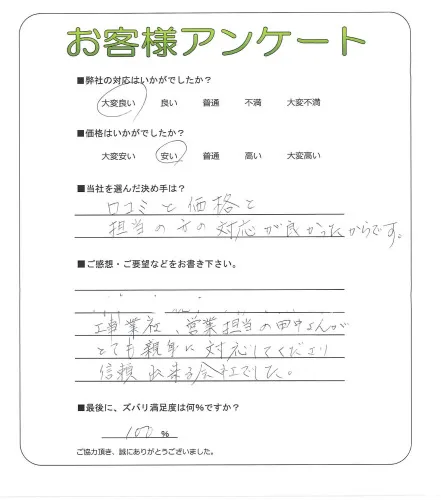 お客様アンケート
■弊社の対応はいかがでしたか？
大変良い 良い 普通 不満 大変不満
■価格はいかがでしたか？
大変安い 安い 普通 高い 大変高い
■当社を選んだ決め手は？
口コミと価格と
担当の方の対応が良かったからです。
■ご感想・ご要望などをお書き下さい。
工事業社、営業担当の田中さんが
とても親身に対応してくださり
信頼出来る会社でした。
■最後に、ズバリ満足度は何％ですか？
100 ％
ご協力頂き、誠にありがとうございました。